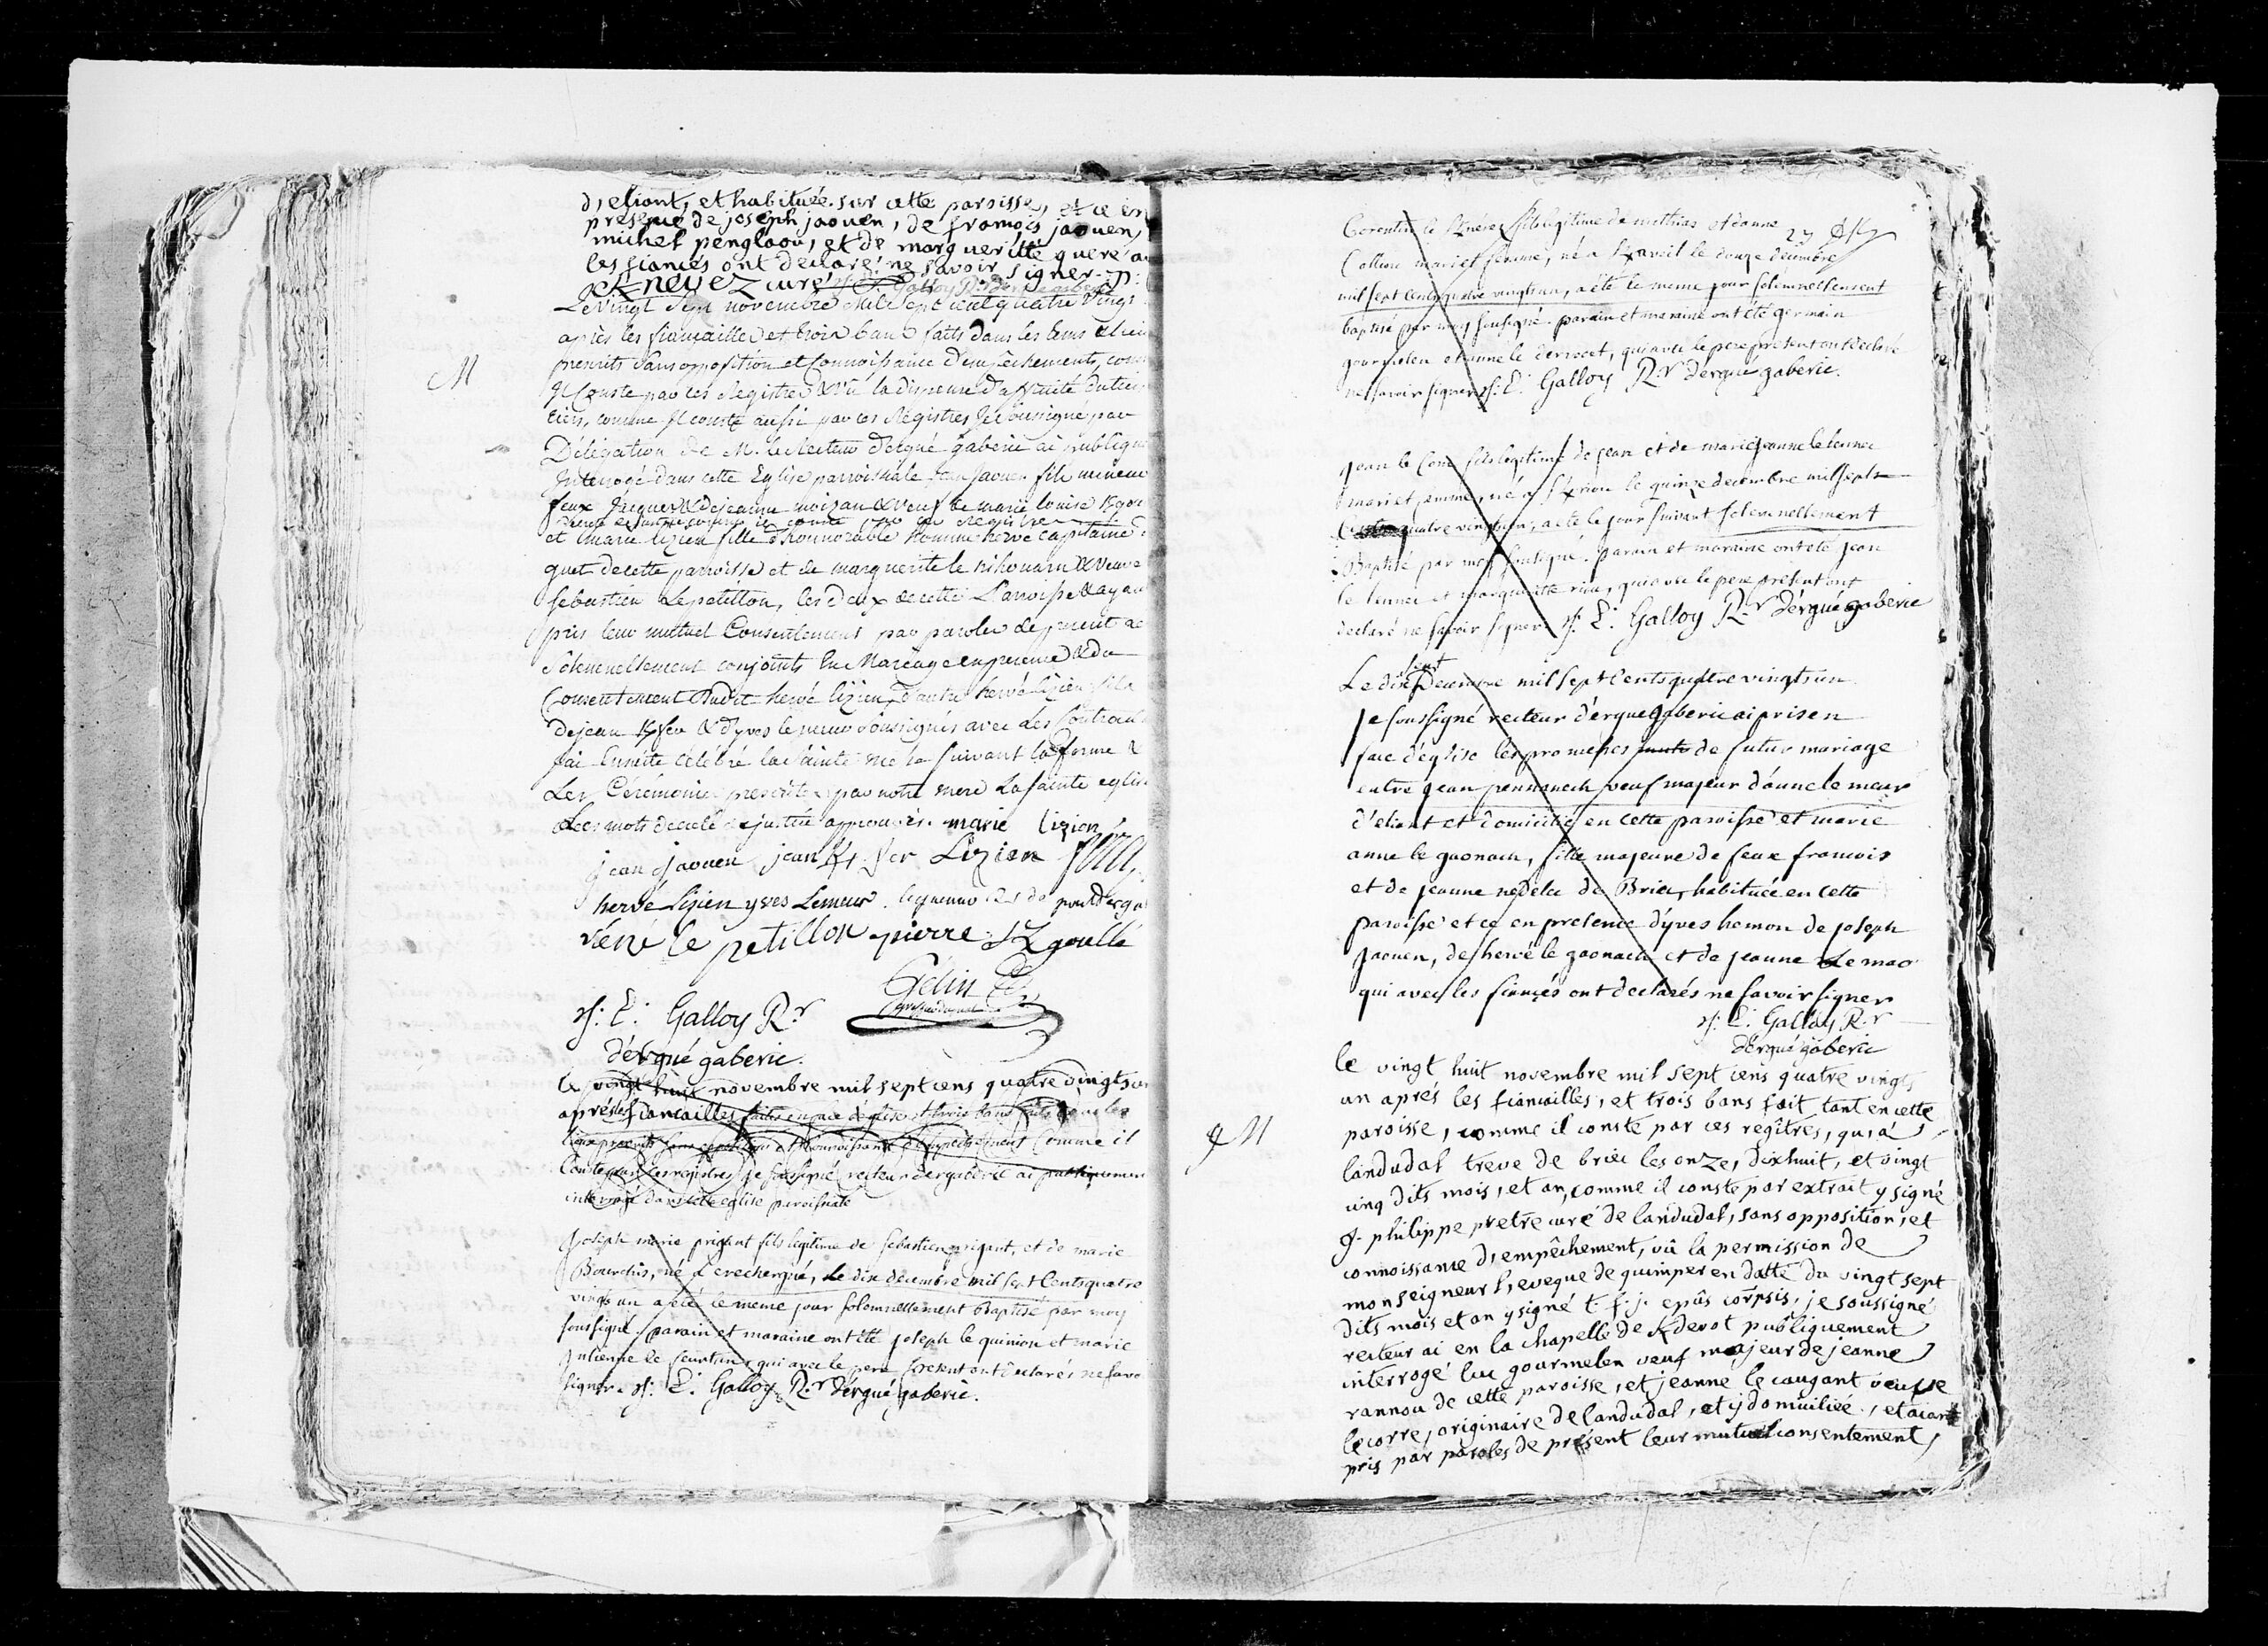 d, eliant, et habituée sur cette paroisse, et ce en
presence de joseph jaouen, de francois jaouen,
michel penglaou, et de margueritte queré
les fiancés ont declaré ne savoir signer
curé
Le vingt Sept novembre Mil Sept cent quatre vingt
après les fiançailles et trois bans faits dans les tems et lieu
prescrits Sans opposition et Connoissance d'empêchements, comme
Conste par ces Registres Vû la dispense d'affinité du
tiers, comme Jl conste aussi par ces Régistres Je soussigné par
M
Délégation de M. le Recteur d'ergué gabéric ai publique
Interrogé dans cette Eglise parroissiale Jean Jaouen fils mineur
feux Jacques & de jeanne moizan & veuf de marie louise
et marie lizien fille d'honnorable homme hervé capitaine
guet de cette parroisse et de marguerite le & Veuve
Sebastien Le petillon, les deux de cette Parroisse & ayant
pris leur mutuel Consentement par paroles de present
Solemnellement conjoints En Mariage en presence & du
Consentement dudit hervé lizien, d'autre hervé lizien fils
de jean & d'yves le meur soussignés avec les
j'ai Ensuite célébré la Sainte messe suivant la forme &
Les Cérémonies prescrites par notre mere La sainte eglise
Les mots approuvés. marie lizien
jean jaouen jean Lizien
hervé lizien yves Lemeur
réné le petillon pierre goullé
Gélin
Galloy R.r
d'érgué gaberic.
Le vingt huit novembre mil sept cens quatre vingts un
après les fiancailles faites en face d'église et trois bans
lieux prescrits sans opposition et connoissance d'empechement Comme il
Conste par ces registres je soussigné recteur d'ergaberic ai publiquement
interrogé dans cette eglise paroissiale
Joseph marie prigent fils legitime de sebastien prigant, et de marie
Bourchis, né a crecherqué, le dix decembre mil sept Cents quatre
vingts un a eté le meme jour solemnellement baptisé par moy
soussigné. parain et maraine ont été joseph le quinion et marie
julienne le qui avec le pere present ont declarés ne savoir
signer. Galloy R.r d'érgué gaberic.
Corentin le fils legitime de mathias et d'anne
mari et femme, né a le douze decembre
mil sept Cents quatre vingts un, a été le meme jour solemnellement
baptisé par moy soussigné. parain et maraine ont été germain
gourmelen et anne le qui avec le pere present ont declaré
ne savoir signer Galloy R.r d'ergué gaberic.
Jean le fils legitime de jean et de marie jeanne le
mari et femme, né a le quinze decembre mil sept
Cents quatre vingts un, a eté le jour suivant solemnellement
Baptisé par moy soussigné. parain et maraine ont eté jean
le et marguerite qui avec le pere present ont
declaré ne savoir signer Galloy R.r d'érgué gaberic
Le dix sept Decembre mil sept Cents quatre vingts un
je soussigné recteur d'érgue gaberic ai pris en
face d'église les promesses de futur mariage
entre jean pennanech veuf majeur d'anne le meur
d'eliant et domicilié en cette paroisse et marie
anne le gaonach, fille majeure de feux francois
et de jeanne nedelec de Briec, habituée en cette
paroisse et ce en presence d'yves hemon de joseph
jaouen, de hervé le gaonach et de jeanne Le mao
qui avec les fiancés ont declarés ne savoir signer
Galloy R.r
d'érgué gaberic
le vingt huit novembre mil sept cens quatre vingts
un aprés les fiancailles, et trois bans fait tant en cette
paroisse, comme il conste par ces regitres, qu, à
M
landudal treve de briéc les onze, dix huit, et vingt
cinq dits mois, et an, comme il conste par extrait y signé
g. philippe pretre curé de landudal, sans opposition, et
connoissance d, empêchement, vû la permission de
monseigneur l, eveque de quimper en datte du vingt sept
dits mois et an y signé t. f. j. epûs corpsis, je soussigné
recteur ai en la chapelle de kdevot publiquement
interrogé luc gourmelen veuf majeur de jeanne
rannou de cette paroisse, et jeanne le caugant veufse
le corre, originaire de landudal, et y domiciliée, et aiant
pris par paroles de présent leur mutuel consentement,